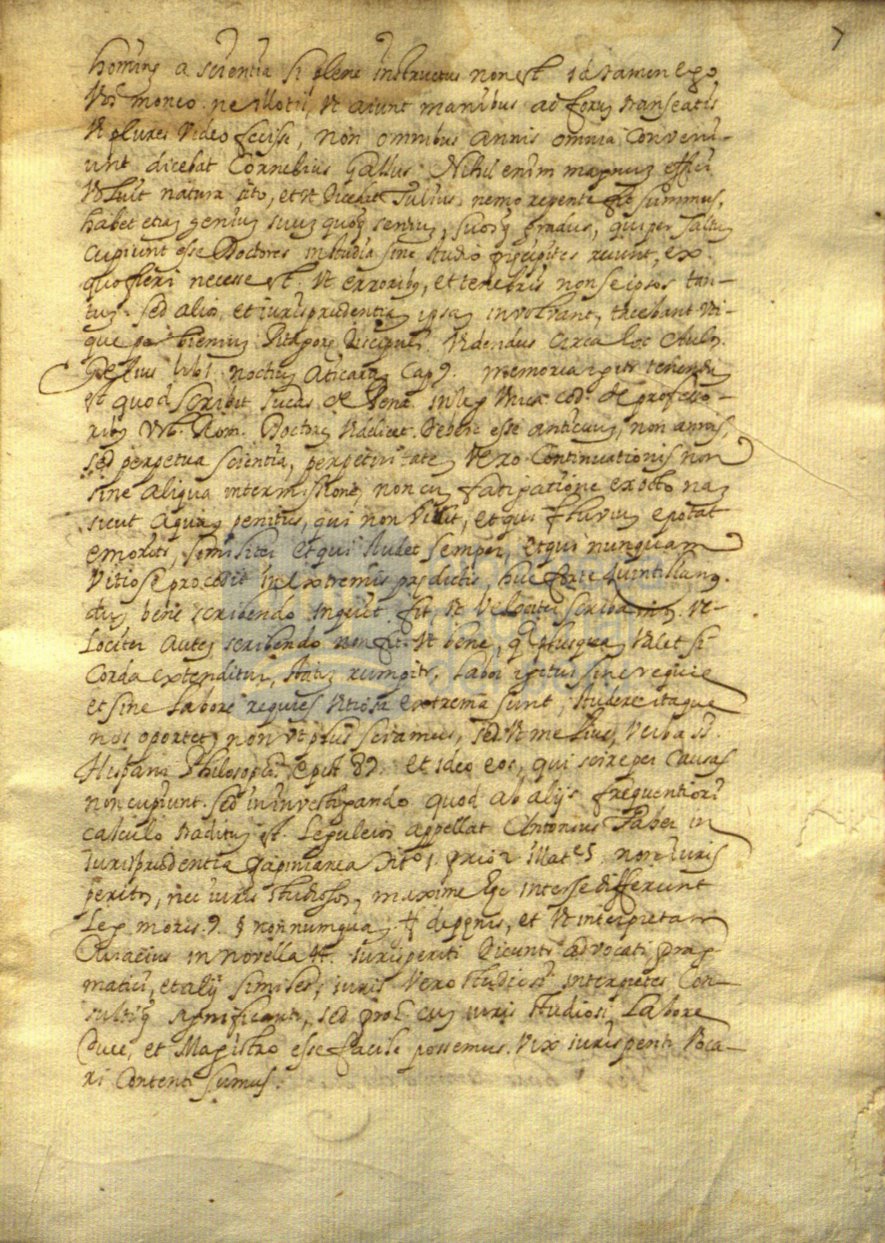 7
homine a scientia si plene instructus non est. id tamen ego
vos moneo ne illotis, ut aiunt manibus ad forum transeatis
ut plures video fecisse, non omnibus annis omnia conveni-
unt dicebat Cornelius Gallus. Nihil enim magnum effici
voluit natura cito, et ut dicebat Tullius, nemo repente fit summus,
habet etiam genium suum quoq sensum, suosq gradus, qui per saltum
cupiunt esse Doctores in studia sine studio precipites ruunt, ex
quo fieri necesse est. ut erroribq, et tenebris non se ipsos tan-
tum. sed alios, et iurisprudentiam ipsam involvant, tacebant uti-
que per biennium Discipuli. videndus circa hoc Aulus
Gellius lib. 1. noctium Aticarum Cap 9. memoria igitur tenendum
est quod scribit Lucas de Pena. in leg unica cod. de professo-
ribq Urb. Rom. Doctrin debere esse anticuum, non annis,
sed perpetua scientia, perpetuitatem vero continuationis non
sine aliqua intermissione, non cum fatigatione
sicut aquam penitus, qui non bibit, et qui fluvium epotat
et qui studet semper, et qui nunquam
vitiose procedit in extremis predictis, huc forte Quintilianq.
dum bene scribendo inquit fit ut velociter scribamq. ve-
lociter autem scribendo non fit. ut bene, valet si
corda extenditur, statim rumpitr, labor igitur sine requie
et sine labore requies vitiosa extrema sunt, studere itaque
nos oportet, non ut plus sciamus, sed ut melius, verba st
Hispani Philosophi Epist 89. et ideo eos, qui scire per causas
non cupiunt. sed in investigando quod ab alijs frequentiori
calculo traditum est. Leguleios appellat Antonius Faber in
iurisprudentia Papinianea tito 1. prio 2 illate 5. non iuris
peritos, nec iuris studiosos, maxime inter se differunt
Leg moris. 9. § non numquam ff de penis, et ut interpretatur
Cuiacius in novella 4. iurisperiti dicuntr advocati, prag-
matici, et alij similes, iuris vero studiosi interpretes con-
sultiq significantr, sed cum iuris studiosi labore
Duce, et Magistro esse facile possemus. vix iurisperiti voca-
ri contenti sumus.